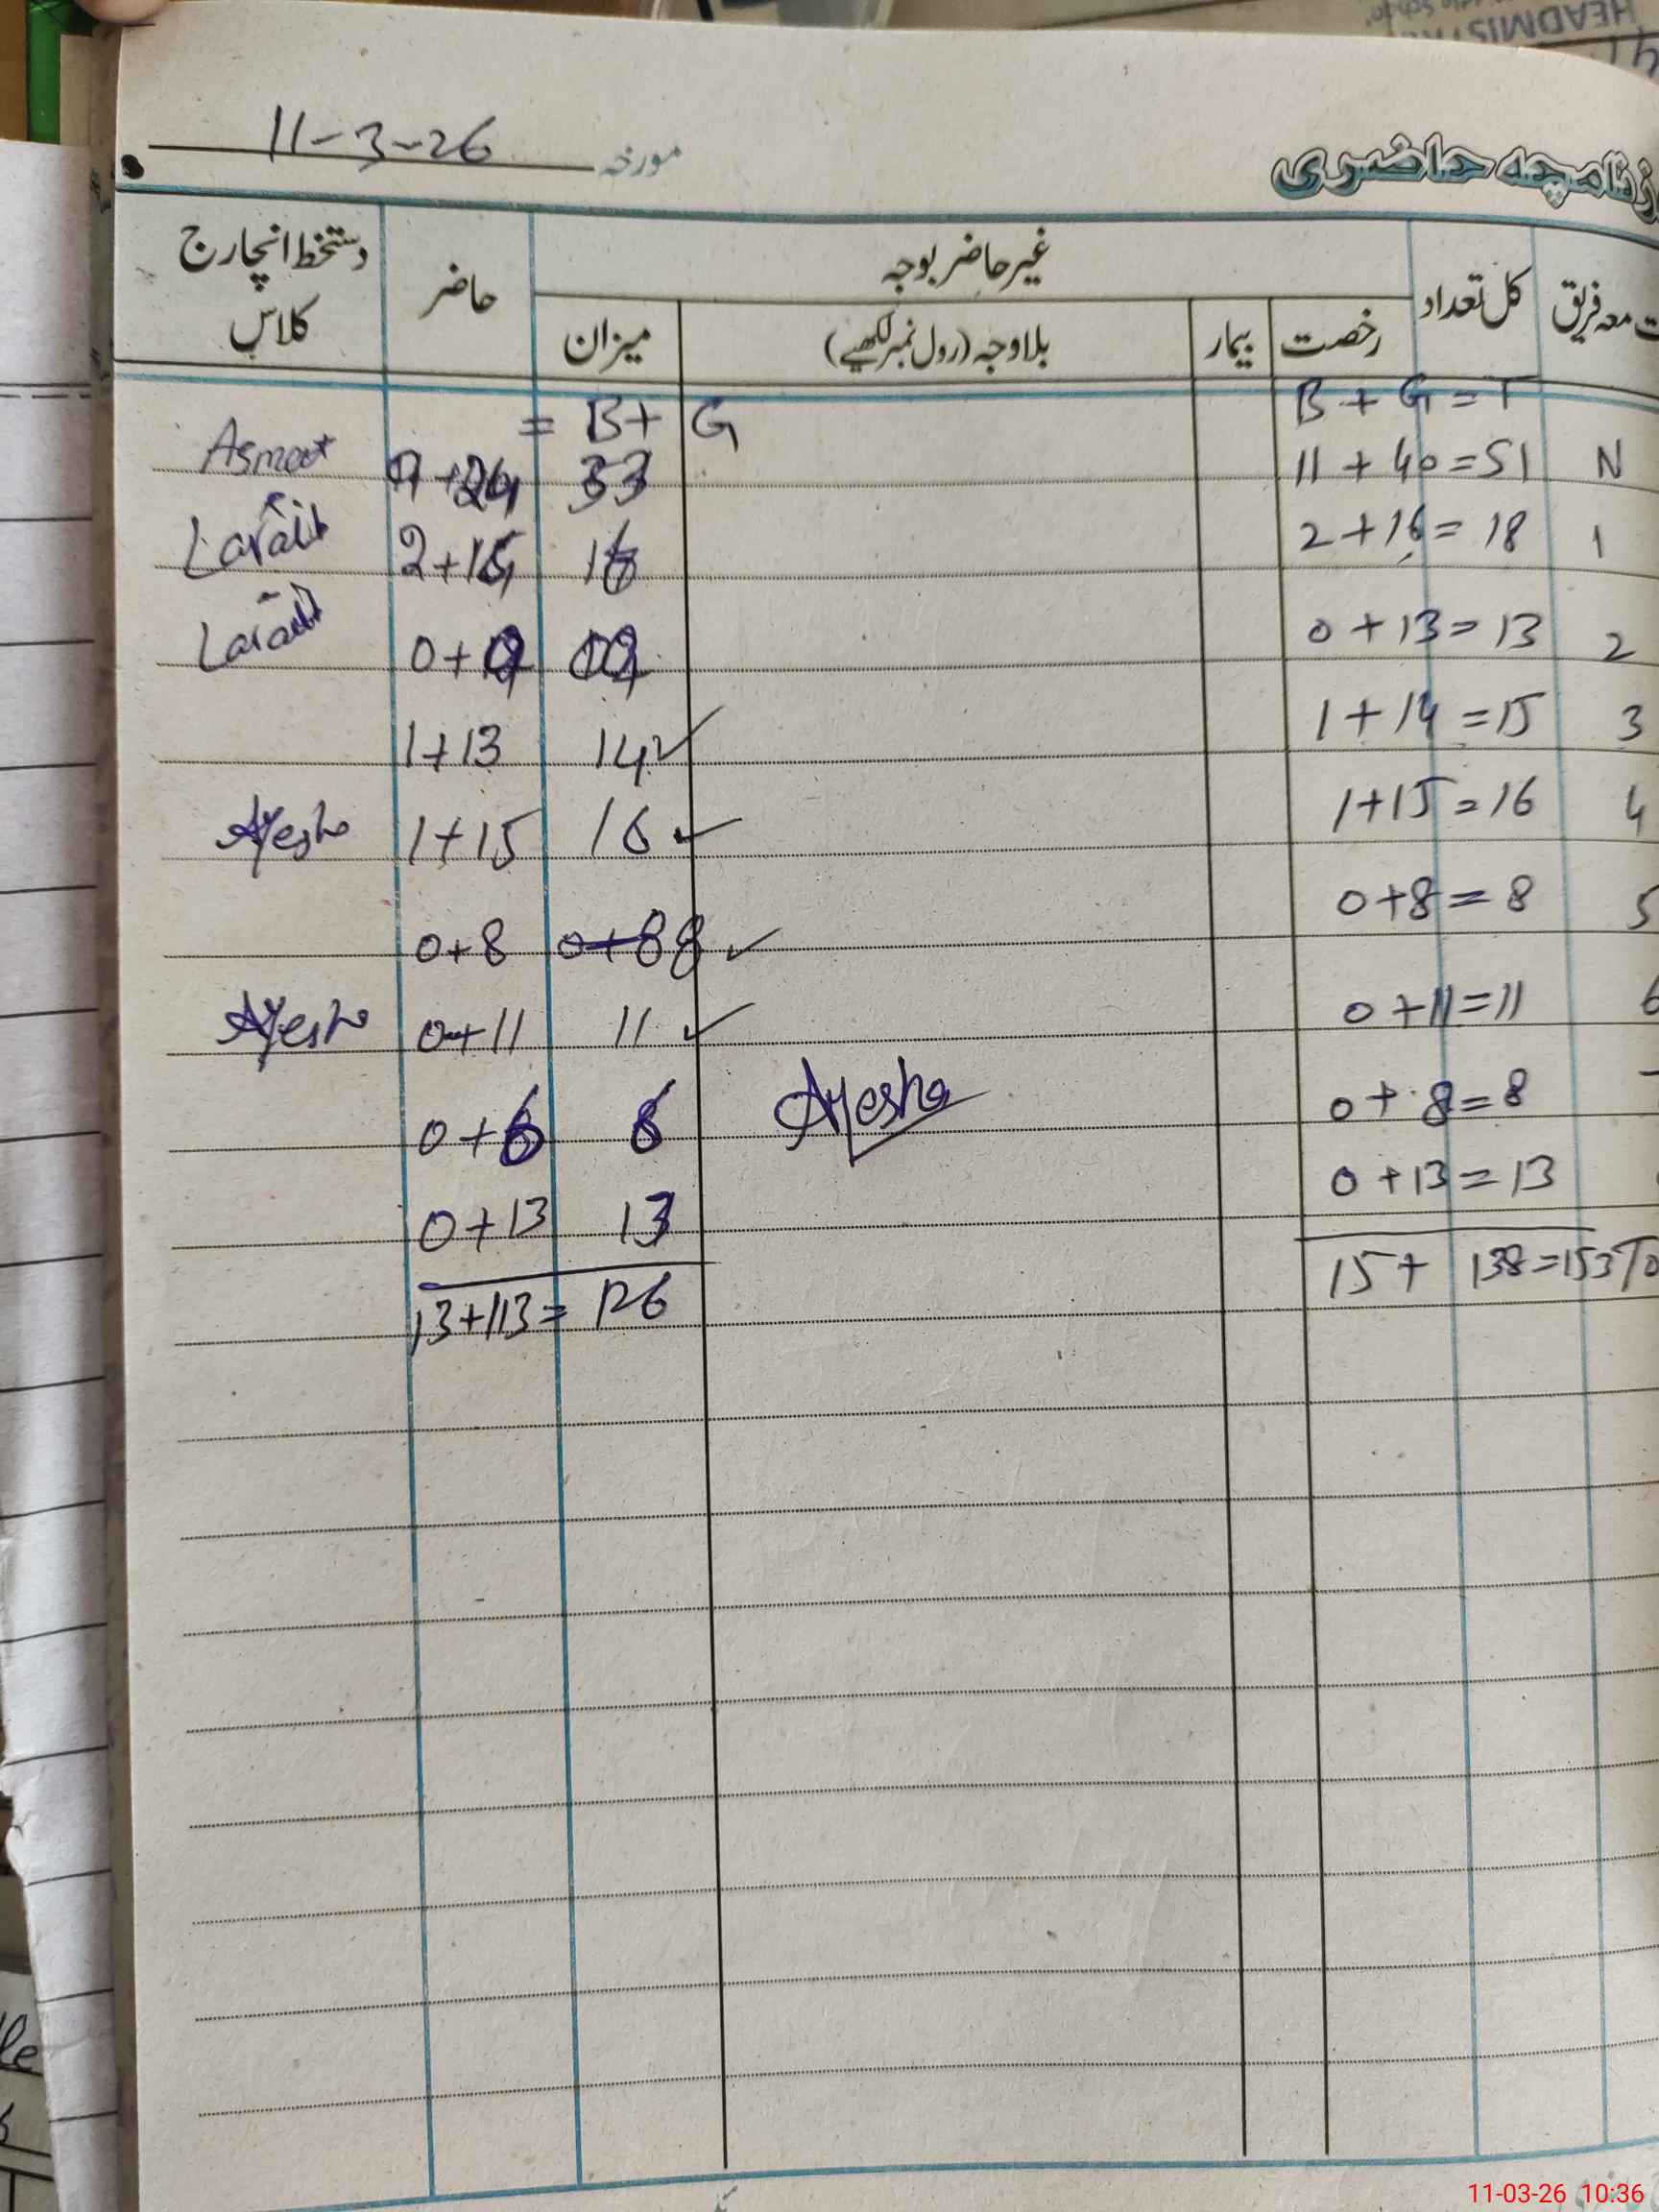 HEADMIST
11-3-26 مورخہ
روزنامچہ حاضری
معہ فریق کل تعداد غیر حاضر بوجہ حاضر دستخط انچارج کلاس
رخصت بیمار بلاوجہ (رول نمبر لکھیے) میزان
= B+ G B + G = T
Asmat 9+24 33 11 + 40 = 51 N
Laraib 2+ 2 + 16 = 18 1
Laraib 0+9 09 0 + 13 = 13 2
1+13 14 ✓ 1 + 14 = 15 3
Ayesha 1+15 16 ✓ 1+15 = 16 4
0+8 0+8 8 ✓ 0+8 = 8 5
Ayesha 0+11 11 ✓ 0+11=11 6
0+6 6 Ayesha 0 + 8=8
0+13 13 0 +13=13
13+113= 126 15+ 138=153 To
11-03-26 10:36